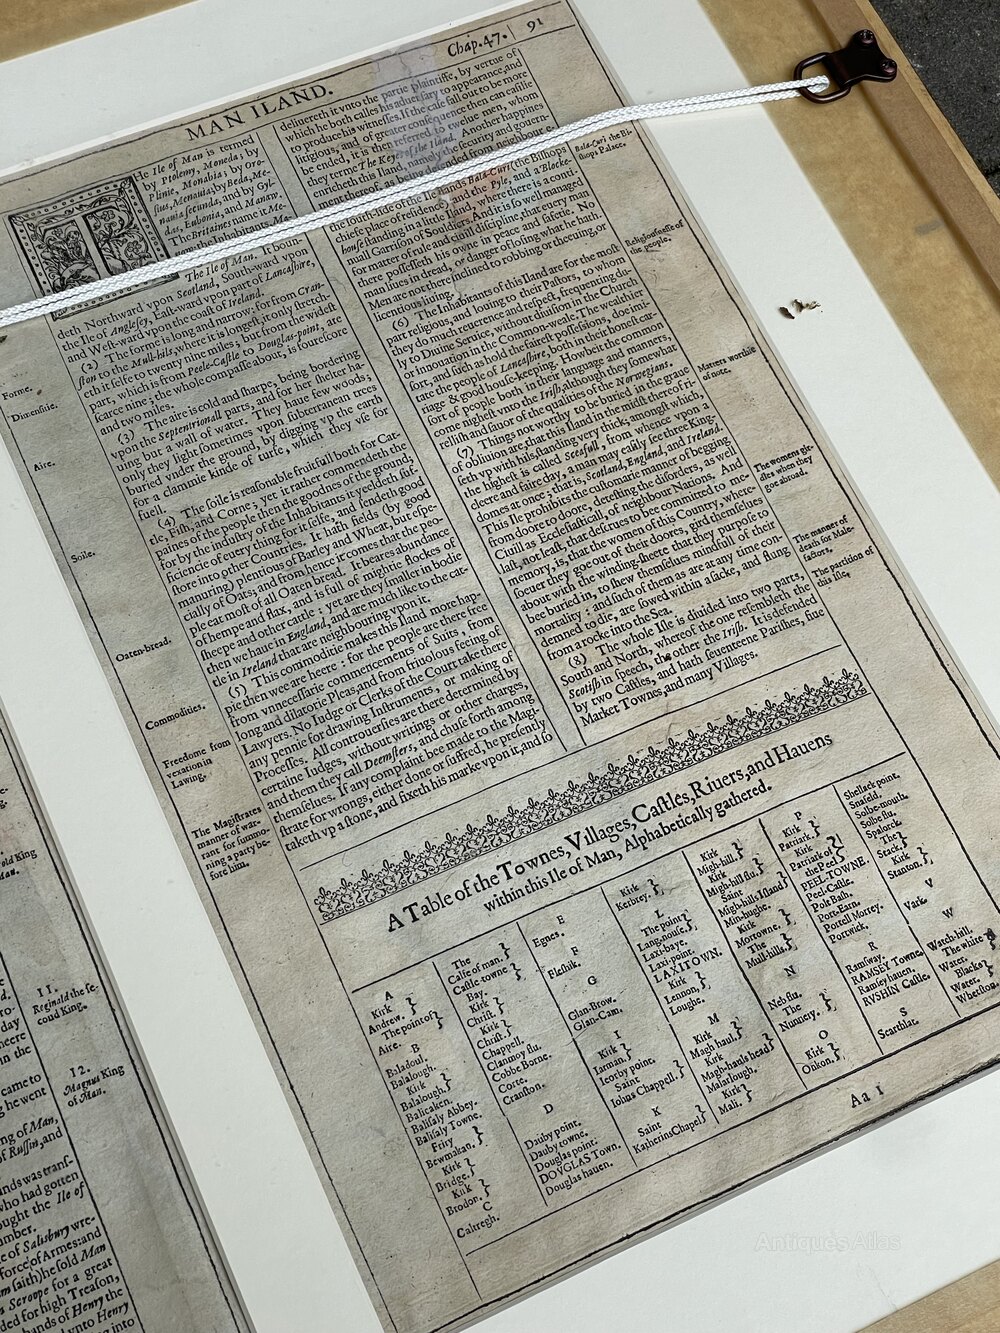 MAN ILAND.
Chap.47.
91
He Ile of Man is termed
by Ptolemy, Moneda; by
Plinie, Monabia; by Oro-
sius, Menauia; by Beda, Me-
nauia secunda, and by Gyl-
das, Eubonia, and Manaw.
The Britaines name it Me-
the Inhabitants
The Ile of Man. It boun-
deth Northward vpon Scotland, Southward vpon
the Ile of Anglesey, East-ward vpon part of Lancashire,
and West-ward vpon the coast of Ireland.
(2) The forme is long and narrow, for from Cran-
ston to the Mull-hils, where it is longest, it only stretch-
eth it selfe to twenty nine miles, but from the widest
part, which is from Peele-Castle to Douglas-point, are
scarce nine; the whole compasse about, is foure score
and two miles.
(3) The aire is cold and sharpe, being bordering
vpon the Septentrionall parts, and for her shelter ha-
uing but a wall of water. They haue few woods;
only they light sometimes vpon subterranean trees
buried vnder the ground, by digging vp the earth
for a clammie kinde of turfe, which they vse for
fuell.
(4) The soile is reasonable fruitfull both for Cat-
tle, Fish, and Corne; yet it rather commendeth the
paines of the people then the goodnes of the ground;
for by the industry of the Inhabitants it yeeldeth suf-
ficiencie of euery thing for it selfe, and sendeth good
store into other Countries. It hath fields (by good
manuring) plentious of Barley and Wheat, but espe-
cially of Oats, and from hence it comes that the peo-
ple eat most of all Oaten bread. It beares abundance
of hempe and flax, and is full of mightie flockes of
sheepe and other cattle: yet are they smaller in bodie
then we haue in England, and are much like to the cat-
tle in Ireland that are neighbouring vpon it.
(5) This commoditie makes this Iland more hap-
pie then wee are heere: for the people are there free
from vnnecessarie commencements of Suits, from
long and dilatorie Pleas, and from friuolous feeing of
Lawyers. No Iudge or Clerks of the Court take there
any pennie for drawing Instruments, or making of
Processes. All controuersies are there determined by
certaine Iudges, without writings or other charges,
and them they call Deemsters, and chuse forth among
themselues. If any complaint bee made to the Magi-
strate for wrongs, either done or suffred, he presently
taketh vp a stone, and fixeth his marke vpon it, and so
Forme.
Dimensiue.
Aire.
Soile.
Oaten-bread.
Commodities.
Freedome from
vexation in
Lawing.
The Magistrates
manner of war-
rant for summo-
ning a party be-
fore him.
deliuereth it vnto the partie plaintiffe, by vertue of
which he both calles his aduersary to appearance, and
to produce his witnesses. If the case fall out to be more
litigious, and of greater consequence then can easilie
be ended, it is then referred to twelue men, whom
they terme The Keyes of the Iland. Another happines
enricheth this Iland, namely the securitie and gouern-
ment thereof, as being defended from neighbour
the south-side of the Ile stands Bala-Curi the Bishops
chiefe place of residence, and the Pyle, and a Blocke-
house standing in a little Iland, where there is a conti-
nuall Garrison of Souldiers. And it is so well managed
for matter of rule and ciuill discipline, that euery man
there possesseth his owne in peace and safetie. No
man liues in dread, or danger of losing what he hath.
Men are not there inclined to robbing or theeuing, or
licentious liuing.
(6) The Inhabitants of this Iland are for the most
part religious, and louing to their Pastors, to whom
they do much reuerence and respect, frequenting dai-
ly to Diuine Seruice, without diuision in the Church
or innouation in the Common-weale. The wealthier
sort, and such as hold the fairest possessions, doe imi-
tate the people of Lancashire, both in their honest car-
riage & good house-keeping. Howbeit the common
sort of people both in their language and manners,
come nighest vnto the Irish, although they somewhat
rellish and sauor of the qualities of the Norwegians.
(7) Things not worthy to be buried in the graue
of obliuion are, that this Iland in the midst thereof ri-
seth vp with hils, standing very thick; amongst which,
the highest is called Sceafull, from whence vpon a
cleere and faire day, a man may easily see three King-
domes at once; that is, Scotland, England, and Ireland.
This Ile prohibits the customarie manner of begging
from doore to doore, detesting the disorders, as well
Ciuill as Ecclesiasticall, of neighbour Nations. And
last, not least, that deserues to bee committed to me-
memory, is, that the women of this Country, where-
soeuer they goe out of their doores, gird themselues
about with the winding-sheete that they purpose to
bee buried in, to shew themselues mindfull of their
mortality: and such of them as are at any time con-
demned to die, are sowed within a sacke, and flung
from a rocke into the Sea.
(8) The whole Ile is diuided into two parts,
South and North, whereof the one resembleth the
Scotish in speech, the other the Irish. It is defended
by two Castles, and hath seuenteene Parishes, fiue
Market Townes, and many Villages.
Bala-Curi the Bi-
shops Palace.
Religiousnesse of
the people.
Matters worthie
of note.
The womens gir-
dles when they
goe abroad.
The manner of
death for Male-
factors.
The partition of
this Ile.
A Table of the Townes, Villages, Castles, Riuers, and Hauens
within this Ile of Man, Alphabetically gathered.
A
Kirk
Andrew.
The point of
Aire.
B
Baladoul.
Balalough.
Kirk
Balalough.
Balicaken.
Balisaly Abbey.
Balisaly Towne.
Friry
Bewmakan.
Kirk
Bridge.
Kirk
Brodon.
C
Caltregh.
The
Calfe of man.
Castle-towne
Bay.
Kirk
Christ.
Kirk
Christ
Chappell.
Clanmoy flu.
Cobbe Borne.
Corte.
Cranston.
D
Dauby point.
Dauby towne.
Douglas point.
DOVGLAS Town.
Douglas hauen.
E
Egnes.
F
Fleshik.
G
Glan-Brow.
Glan-Cam.
I
Kirk
Iarman.
Ieorby point.
Saint
Iohns Chappell.
K
Saint
Katherins Chapel
Kirk
Kerbrey.
L
The point
Langnouse.
Laxi-baye.
Laxi-point.
LAXI TOWN.
Kirk
Lennon.
Loughe.
M
Kirk
Maghaul.
Kirk
Magh-hauls head
Malarlough.
Kirk
Mali.
Kirk
Migh-hill.
Kirk
Migh-hill flu.
Saint
Migh-hills Island
Min-hughe.
Kirk
Mortowne.
The
Mull-hills.
N
Neb flu.
The
Nunnery.
O
Kirk
Onkon.
P
Kirk
Patriark.
Kirk
Patriark of
the Peel
PEEL TOWNE.
Peel-Castle.
Polt Bash.
Port-Earn.
Portell Morrey.
Portwick.
R
Ramsway.
RAMSEY Towne.
Ramsey hauen.
RVSHIN Castle.
S
Scarthlat.
Shellack point.
Snafeld.
Solbe-mouth.
Solbe flu.
Spaloret.
The
Stack.
Kirk
Stanton.
V
Vark.
W
Watch-hill.
The white
Water.
Blacke
Water.
Whetston.
Aa 1
old King
Man.
11.
Reginald the se-
cond King.
12.
Magnus King
of Man.
came to
g he went
ng of Man,
of Russin, and
nds was transf-
who had gotten
ought the Ile of
umber.
e of Salisbury wre-
force of Armes: and
m saith) he sold Man
m Scroope for a great
ded for high Treason,
hands of Henry the
vnto Henry
ing into
Antiques Atlas